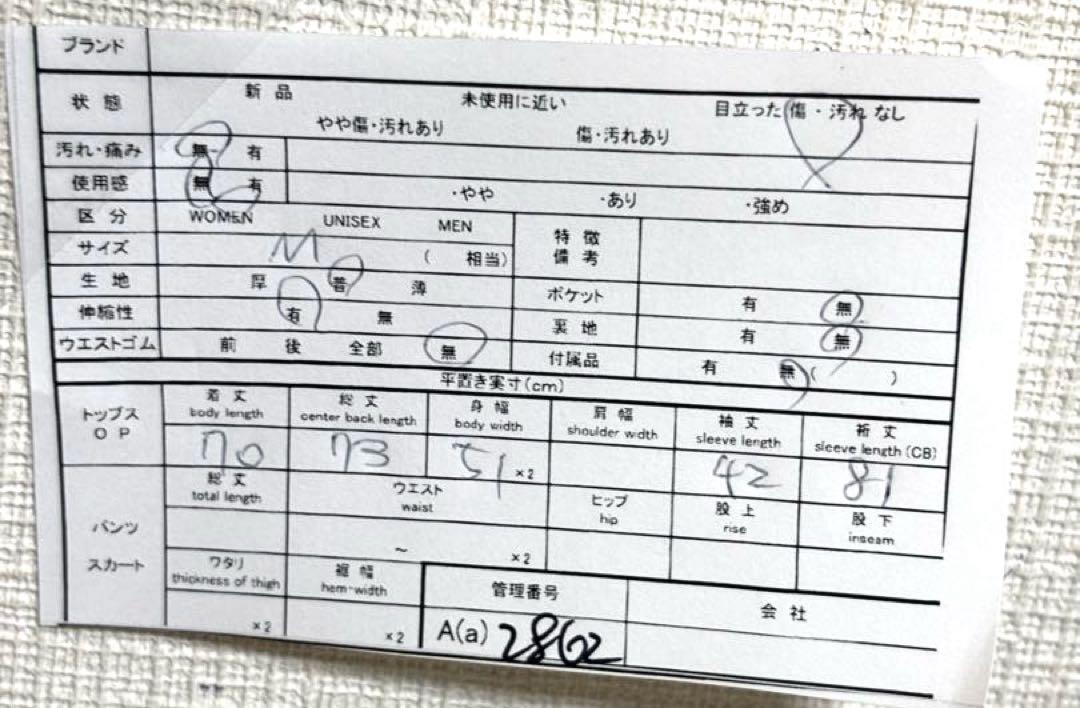 ブランド
状態 新品 未使用に近い 目立った傷・汚れなし
やや傷・汚れあり 傷・汚れあり
汚れ・痛み 無 有
使用感 無 有 ・やや ・あり ・強め
区分 WOMEN UNISEX MEN 特徴備考
サイズ M ( 相当)
生地 厚 普 薄 ポケット 有 無
伸縮性 有 無 裏地 有 無
ウエストゴム 前 後 全部 無 付属品 有 無( )
平置き実寸(cm)
トップス OP 着丈 総丈 身幅 肩幅 袖丈 裄丈
body length center back length body width shoulder width sleeve length sleeve length(CB)
70 73 51 ×2 42 81
パンツ スカート 総丈 ウエスト ヒップ 股上 股下
total length waist hip rise inseam
~ ×2
ワタリ 裾幅 管理番号 会社
thickness of thigh hem-width
×2 ×2 A(a) 2862